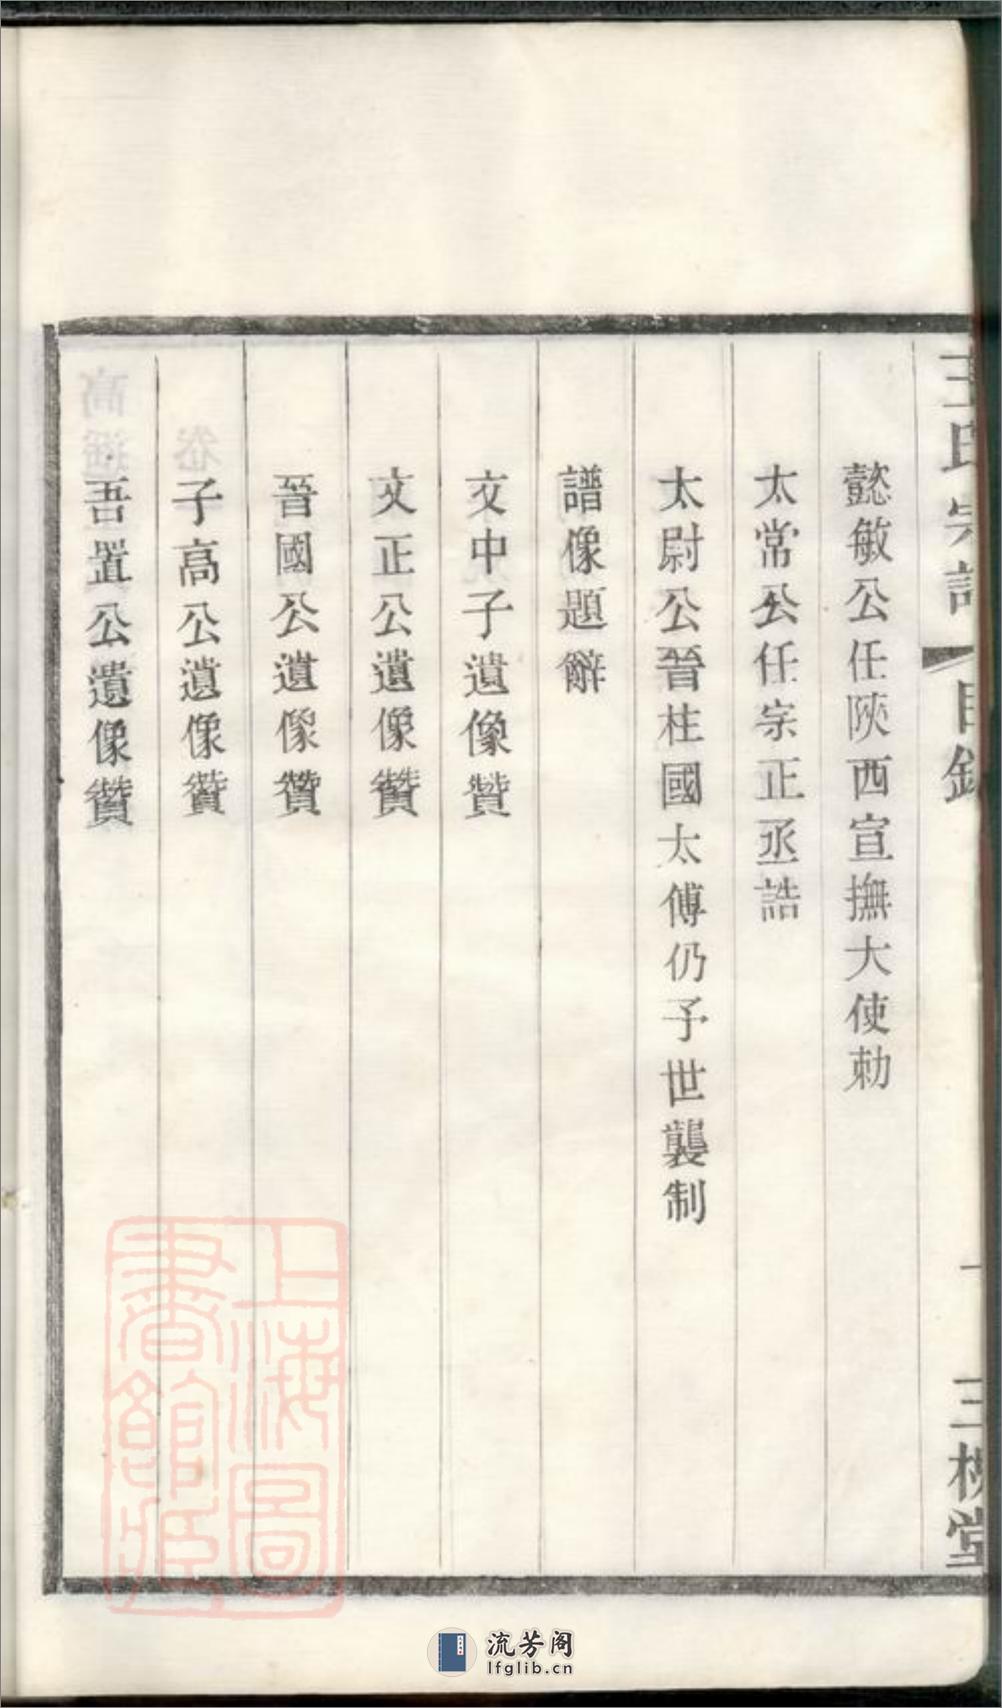 王氏宗譜
目錄
一
三槐堂
懿敏公任陝西宣撫大使勅
太常公任宗正丞誥
太尉公晉柱國太傅仍予世襲制
譜像題辭
文中子遺像贊
文正公遺像贊
晉國公遺像贊
子高公遺像贊
吾置公遺像贊
上海圖書館藏
流芳阁
lfglib.cn